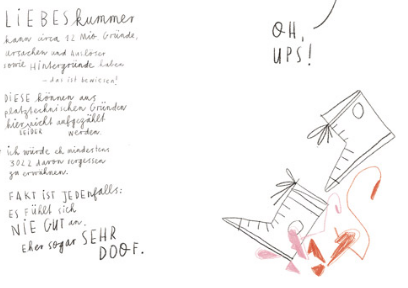 LiEBESkummer
kann circa 12 Mio. Gründe,
Ursachen und Auslöser
sowie HiNtERgRÜNdE haben
– das ist bewiesen!
DiESE können aus
platztechnischen Gründen
hier nicht aufgezählt
LEiDER werden.
ich würde eh mindestens
3022 davon vergessen
zu erwähnen.
FAKT iST JEDENfalls:
ES FÜhlt sich
NiE GUT an.
Eher sogar SEHR
DOOF.
OH,
UPS!